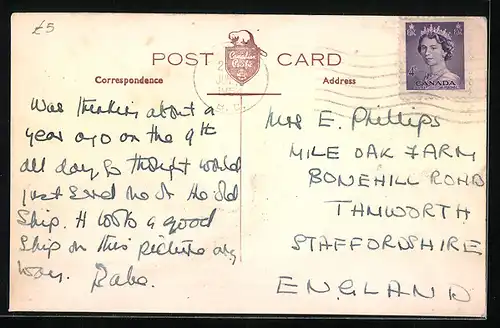 £5
POST CARD
Correspondence
Address
4¢
CANADA
Was thinking about a
year ago on the 9th
all day so thought would
just send the old
Ship. It looks a good
Ship on this picture any
way. Babs.
Mrs E. Phillips
MILE OAK FARM
BONEHILL ROAD
TAMWORTH
STAFFORDSHIRE
ENGLAND